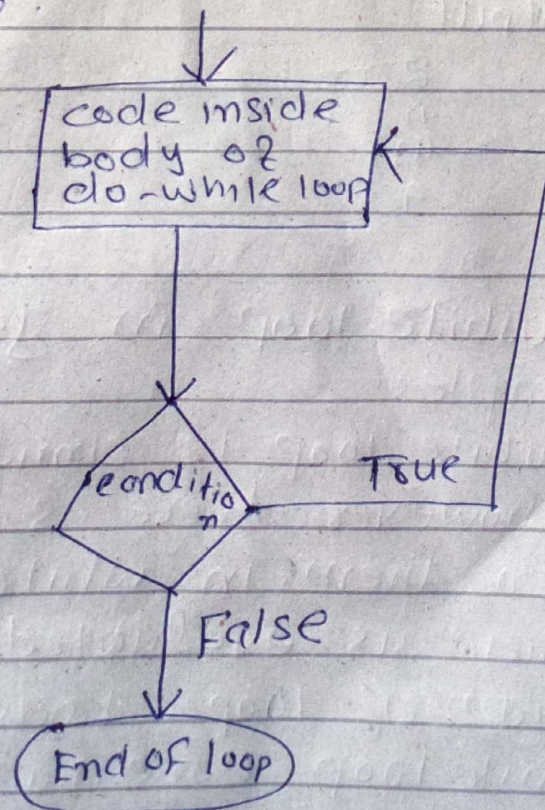 code inside
body of
do-while loop
conditio
n
True
False
End of loop